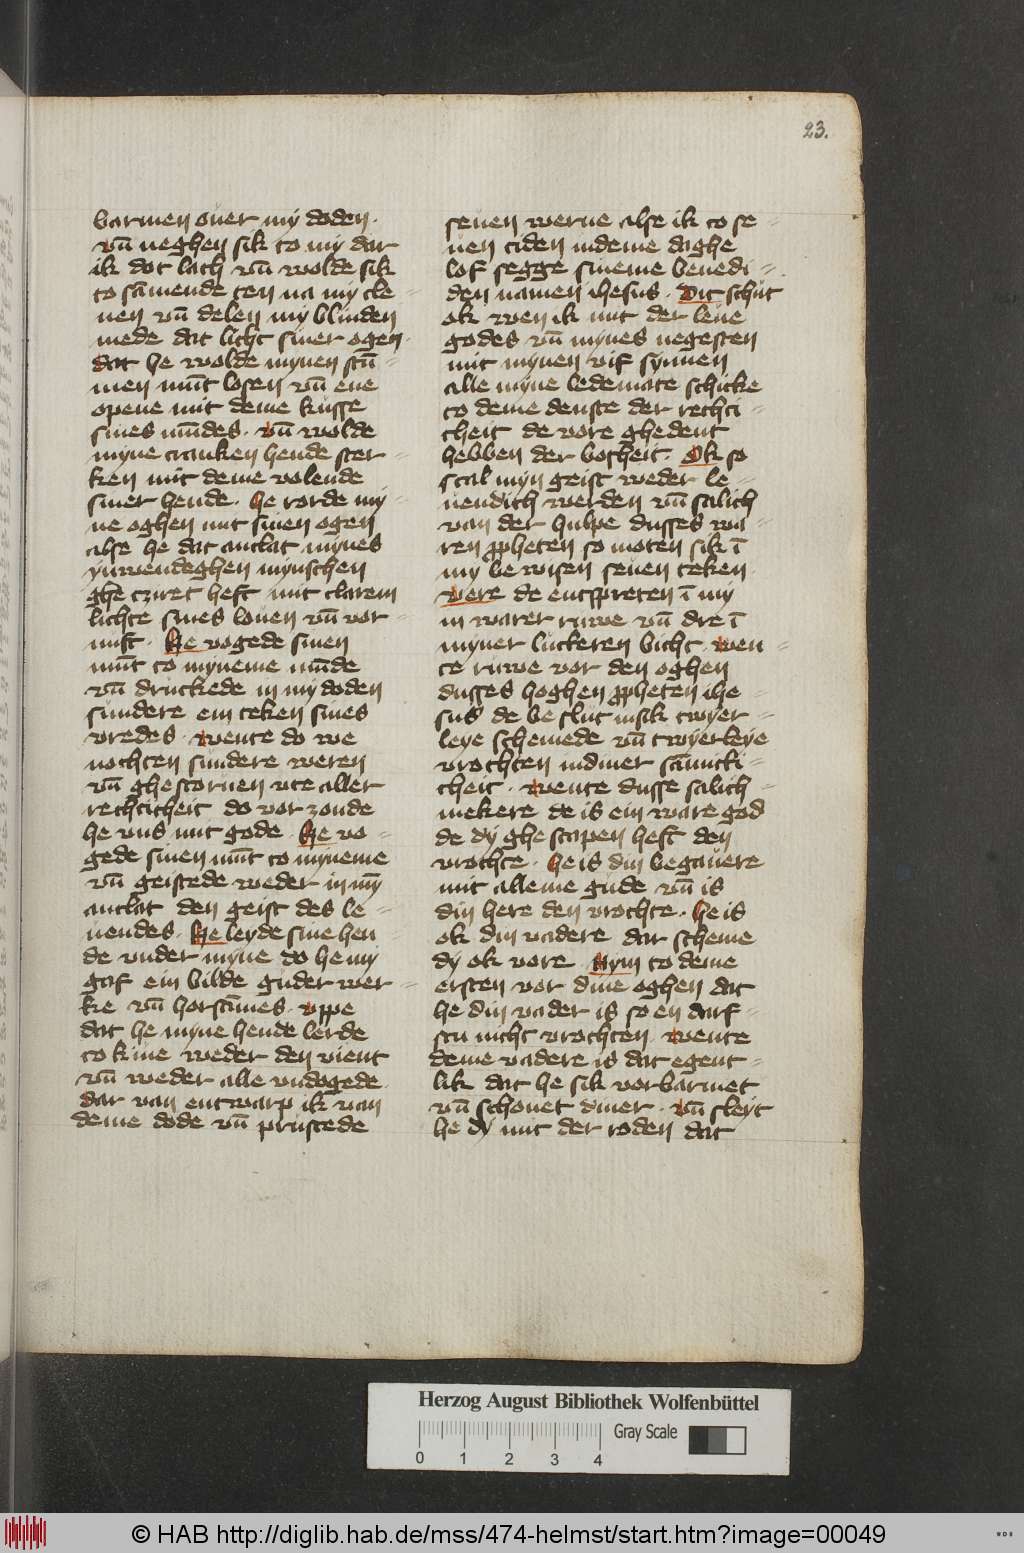 23.
barmen ouer my doden.
vn̄ neghen sik to my dar
ik dot lach vn̄ wolde sik
to sāmende ten na my cle-
nen vn̄ delen my blinden
mede dat licht siner ogen.
dat he wolde mynen stū-
men mūt losen vn̄ ene
opene mit deme kusse
sines mūdes. vn̄ wolde
myne cranken hende ster-
ken mit deme volende
siner hende. he rorde my-
ne oghen mit sinen ogen
alse he dat antlat mynes
ynwendeghen mynschen
ghe cziret heft mit clarem
lichte sines louen vn̄ vor-
nuft. He vogede sinen
mūt to myneme mūde
vn̄ druckede in my doden
sundere ein teken sines
vredes. wente do we
nochten sundere weren
vn̄ ghestoruen vte aller
rechticheit do vor zonde
he vns mit gode. He vo-
gede sinen mūt to myneme
vn̄ geistede weder in my
antlat den geist des le-
uendes. He leyde sine hen-
de vnder myne do he my
gaf ein bilde guder wer-
ke vn̄ horsāmes. vppe
dat he myne hende lerde
to kiue weder den vient
vn̄ weder alle vndogede.
dar van entwarp ik van
deme dode vn̄ prustede
seuen werue alse ik to se-
uen tiden indeme daghe
lof segge sineme benedi-
den namen ihesus. Dit schut
ok wen ik mit der leue
godes vn̄ mynes negesten
mit mynen vif synnen
alle myne ledemate schicke
to deme denste der rechti-
cheit de vore ghedent
hebben der bosheit. Ok so
scal myn geist weder le-
uendich werden vn̄ salich
van der hulpe dusses wa-
ren ppheten so moten sik ī
my be wisen seuen teken.
vere de entspreten ī my
in warer ruwe vn̄ dre ī
myner luckeren bicht. wen-
te ruwe vor den oghen
dusses hoghen ppheten ihe-
sus de be slut insik twyer-
leye schemede vn̄ twyerleye
vrochten indiner sāmicti-
cheit. wente dusse salich-
mekere de is ein ware god
de dy ghe scapen heft den
vrochte. he is din begauere
mit alleme gude vn̄ is
din here den vrochte. he is
ok din vadere dar scheme
dy ok vore. Nym to deme
ersten vor dine oghen dat
he din vader is so en darf-
stu nicht vrochten. wente
deme vadere is dat egent-
lik dat he sik vorbarmet
vn̄ schonet diner. vn̄ sleyt
he dy mit der roden dat
Herzog August Bibliothek Wolfenbüttel
Gray Scale
0 1 2 3 4
© HAB http://diglib.hab.de/mss/474-helmst/start.htm?image=00049